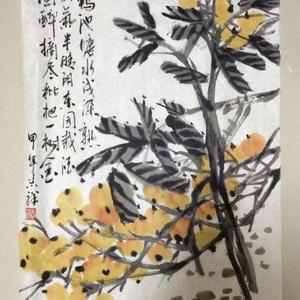 鸭池塘水浅深熟
气半晴阴东园载酒
园醉摘尽枇杷一树金
甲年